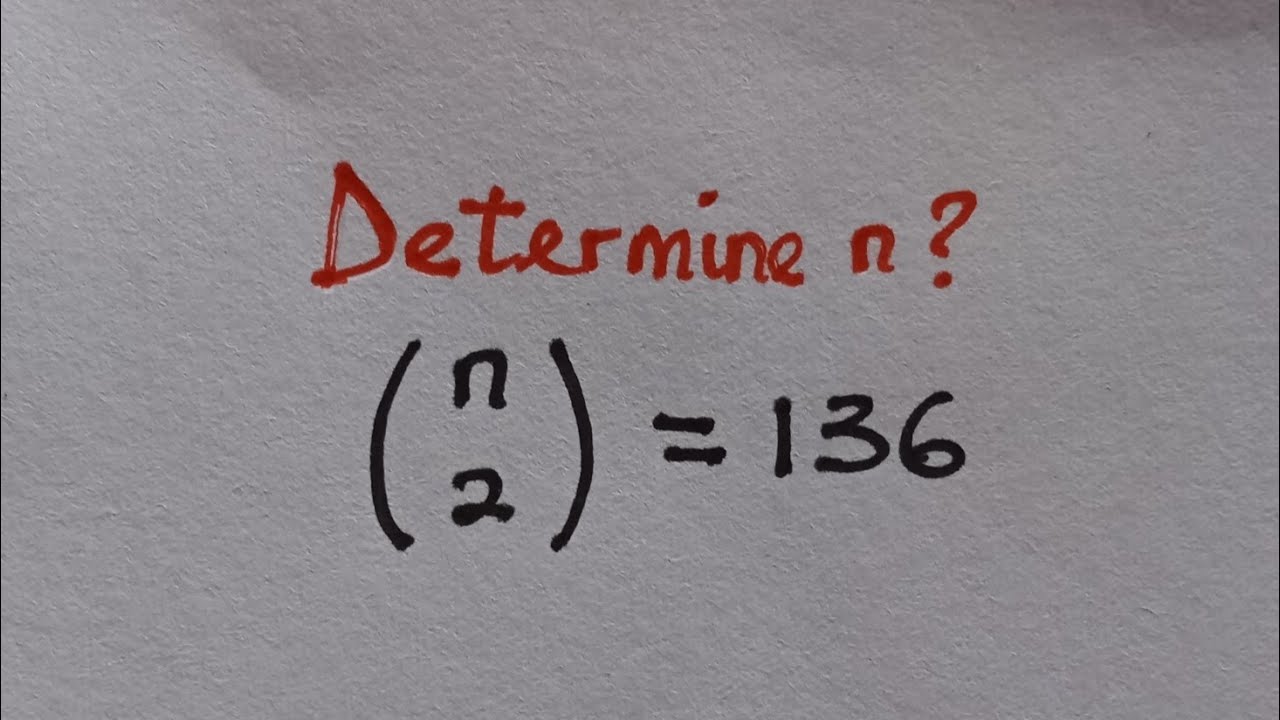 Determine n?
(n
2) = 136